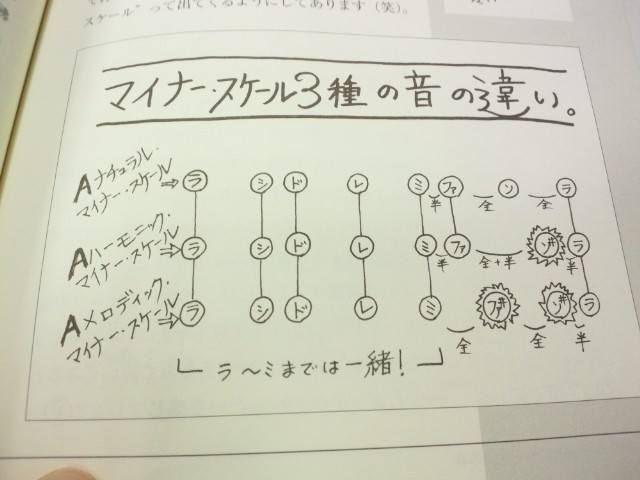 スケール”って出てくるようにしてあります（笑）。
マイナー・スケール3種の音の違い。
Aナチュラル・
マイナー・スケール⇒ ラ シ ド レ ミ 半 ファ 全 ソ 全 ラ
Aハーモニック・
マイナー・スケール⇒ ラ シ ド レ ミ 半 ファ 全+半 ソ# 半 ラ
Aメロディック・
マイナー・スケール⇒ ラ シ ド レ ミ 全 ファ# 全 ソ# 半 ラ
ラ〜ミまでは一緒！